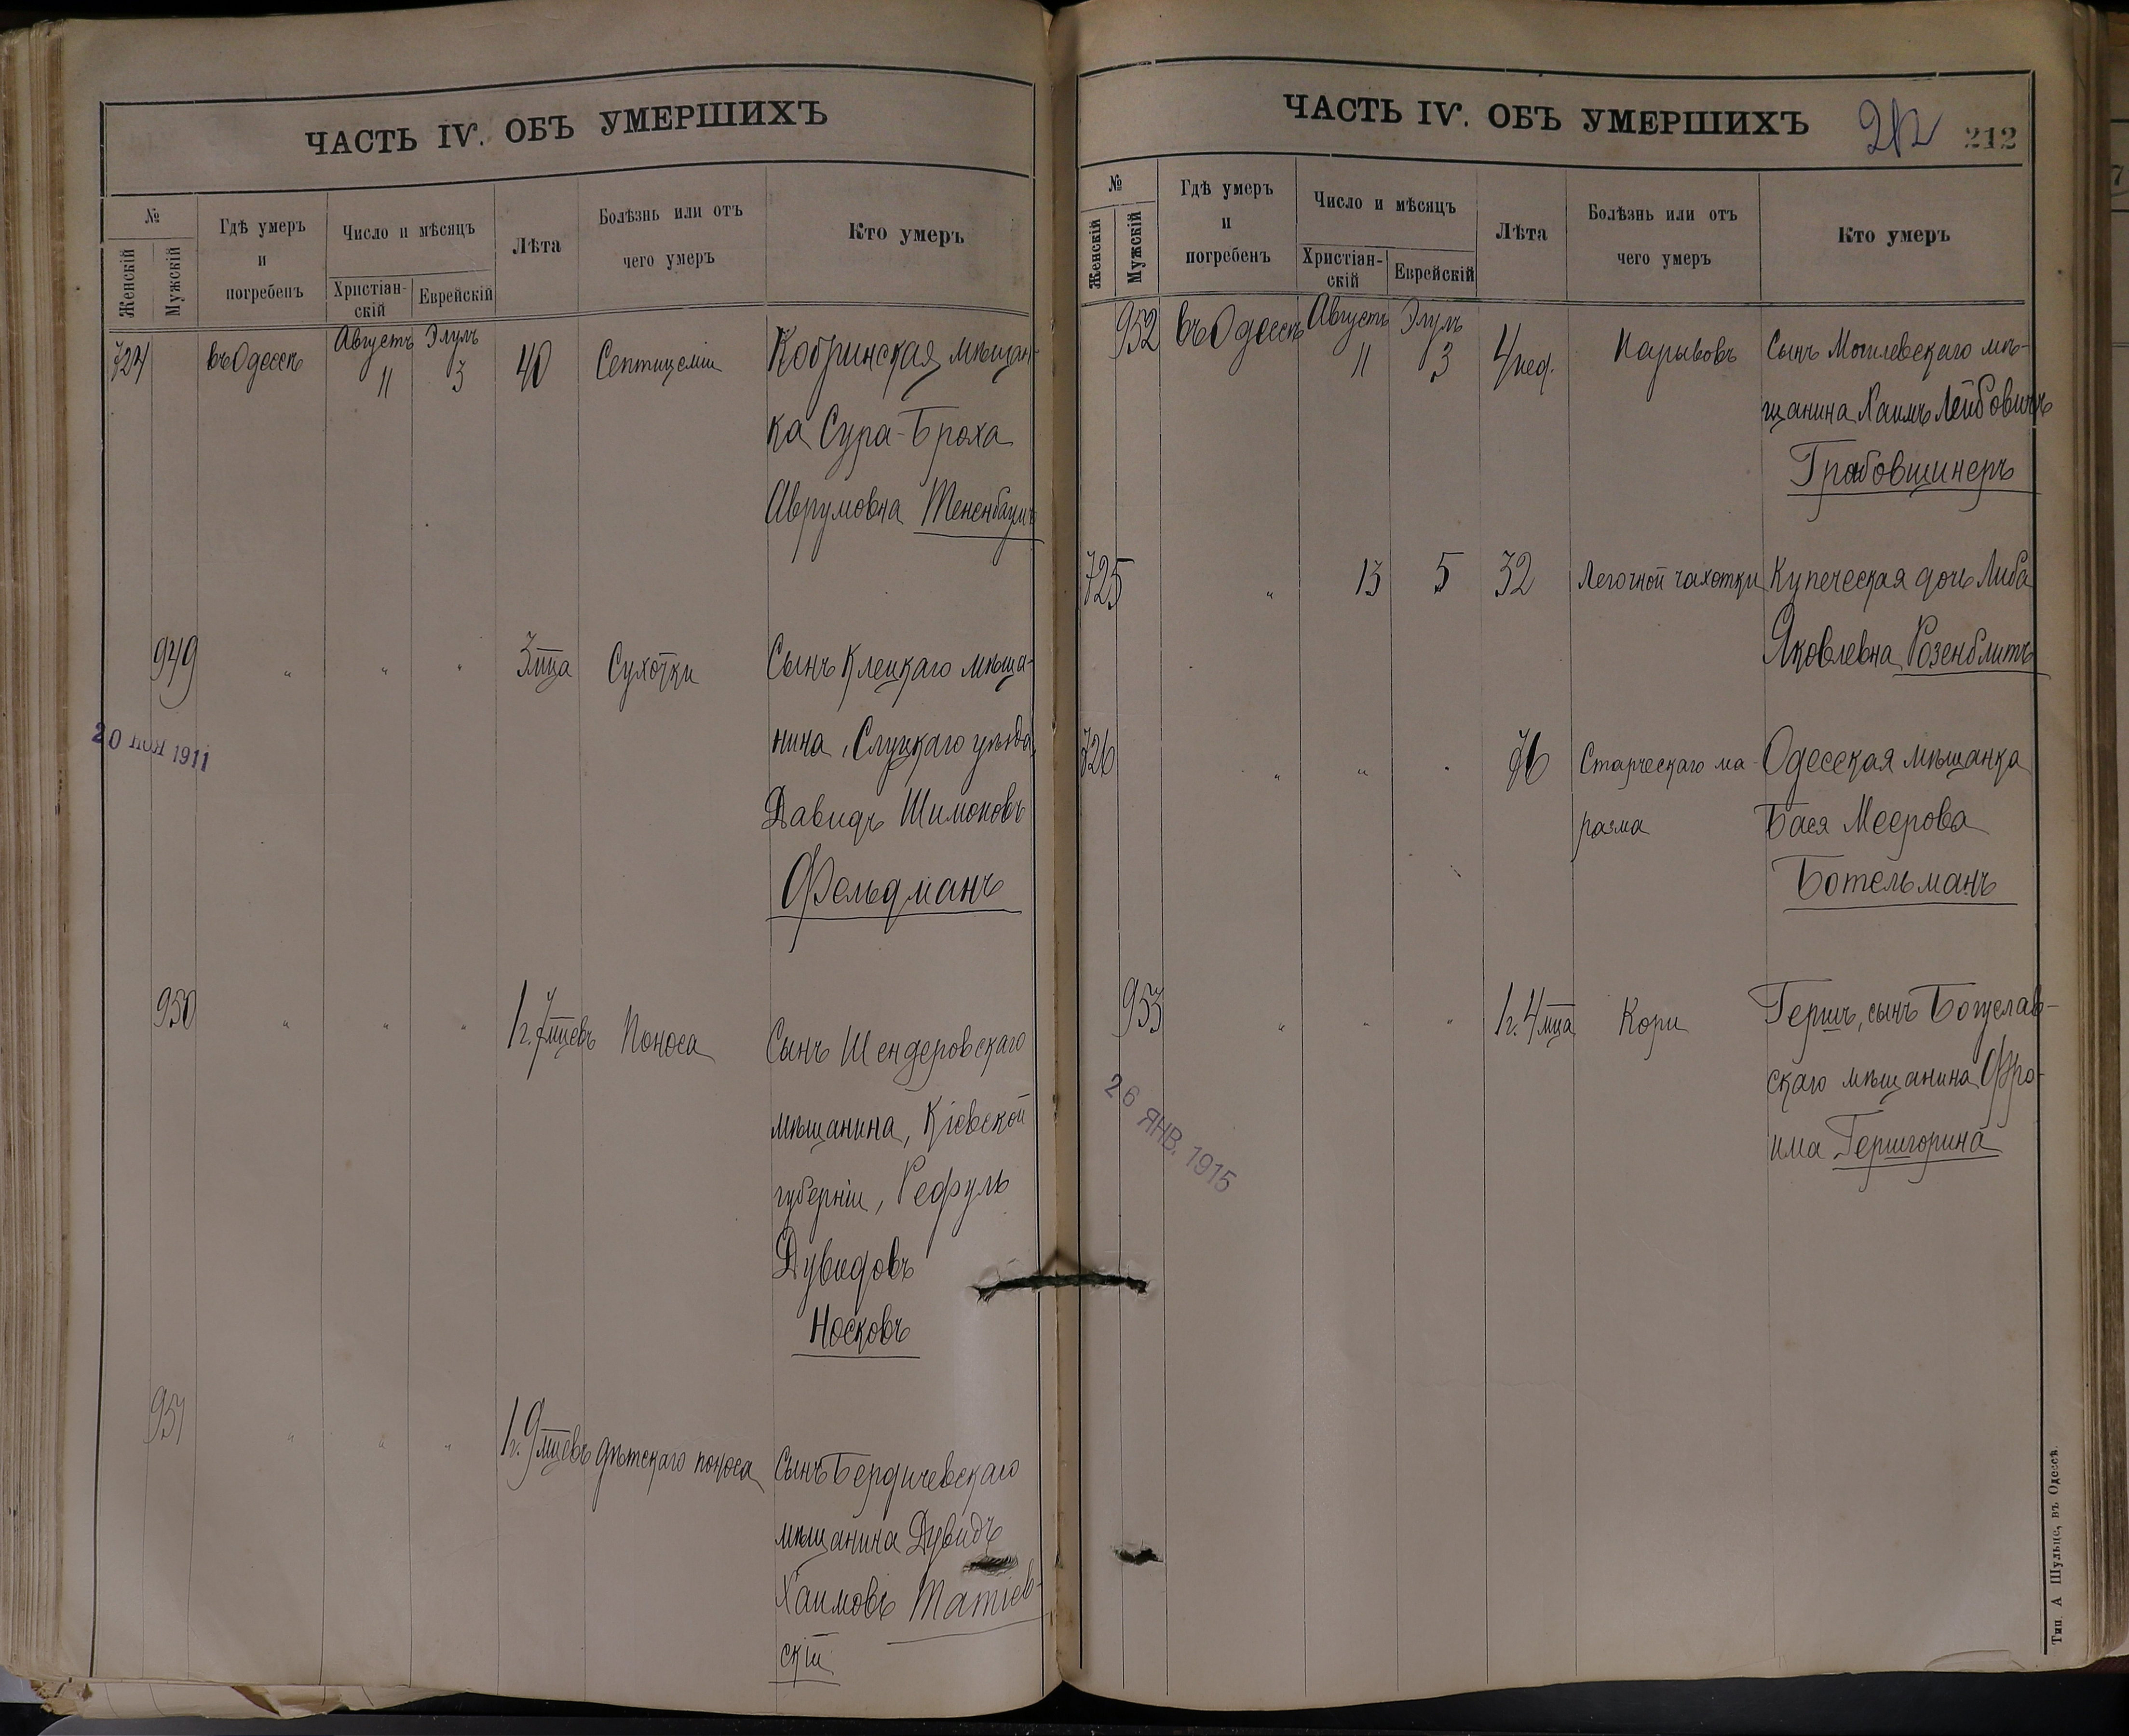 ЧАСТЬ IV. ОБЪ УМЕРШИХЪ
№
Женскій
Мужскій
Гдѣ умеръ
и
погребенъ
Число и мѣсяцъ
Христіан-
скій
Еврейскій
Лѣта
Болѣзнь или отъ
чего умеръ
Кто умеръ
724 въ Одессѣ Августъ 11 Элулъ 3 40 Септицеміи Кобринская мѣщан-
ка Сура-Броха
Аврумовна Тененбаумъ
949 " " " 3 мца Сухотки Сынъ Клецкаго мѣща-
нина, Слуцкаго уѣзда,
Давидъ Шимоновъ
Фельдманъ
20 НОЯ 1911
950 " " " 1 г. 7 мцевъ Поноса Сынъ Шендеровскаго
мѣщанина, Кіевской
губерніи, Рефуль
Дувидовъ
Носковъ
951 " " " 1 г. 9 мцевъ дѣтскаго поноса Сынъ Бердичевскаго
мѣщанина Дувидъ
Хаимовъ Матіев-
скій
ЧАСТЬ IV. ОБЪ УМЕРШИХЪ
212 212
№
Женскій
Мужскій
Гдѣ умеръ
и
погребенъ
Число и мѣсяцъ
Христіан-
скій
Еврейскій
Лѣта
Болѣзнь или отъ
чего умеръ
Кто умеръ
952 въ Одессѣ Августъ 11 Элулъ 3 4 нед. Нарывовъ Сынъ Могилевскаго мѣ-
щанина Хаимъ Лейбовичъ
Грабовщинеръ
725 " 13 5 32 Легочной чахотки Купеческая дочь Либа
Яковлевна Розенблитъ
726 " " " 76 Старческаго ма- Одесская мѣщанка
разма Бася Меерова
Ботельманъ
953 " " " 1 г. 4 мца Кори Гершъ, сынъ Богуслав-
скаго мѣщанина Фро-
има Гершгорина
26 ЯНВ. 1915
Тип. А Шульце, въ Одессѣ.